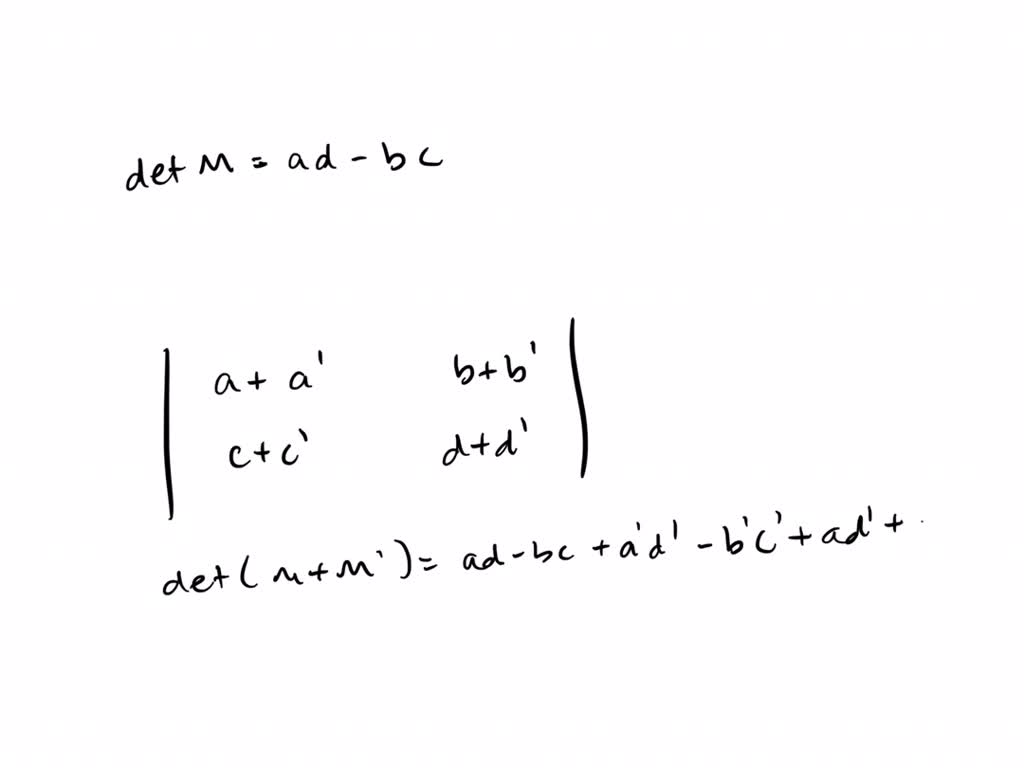 det M = ad - bc
| a + a' b+b' |
| c+c' d+d' |
det(M+M')= ad-bc +a'd' -b'c'+ ad' +